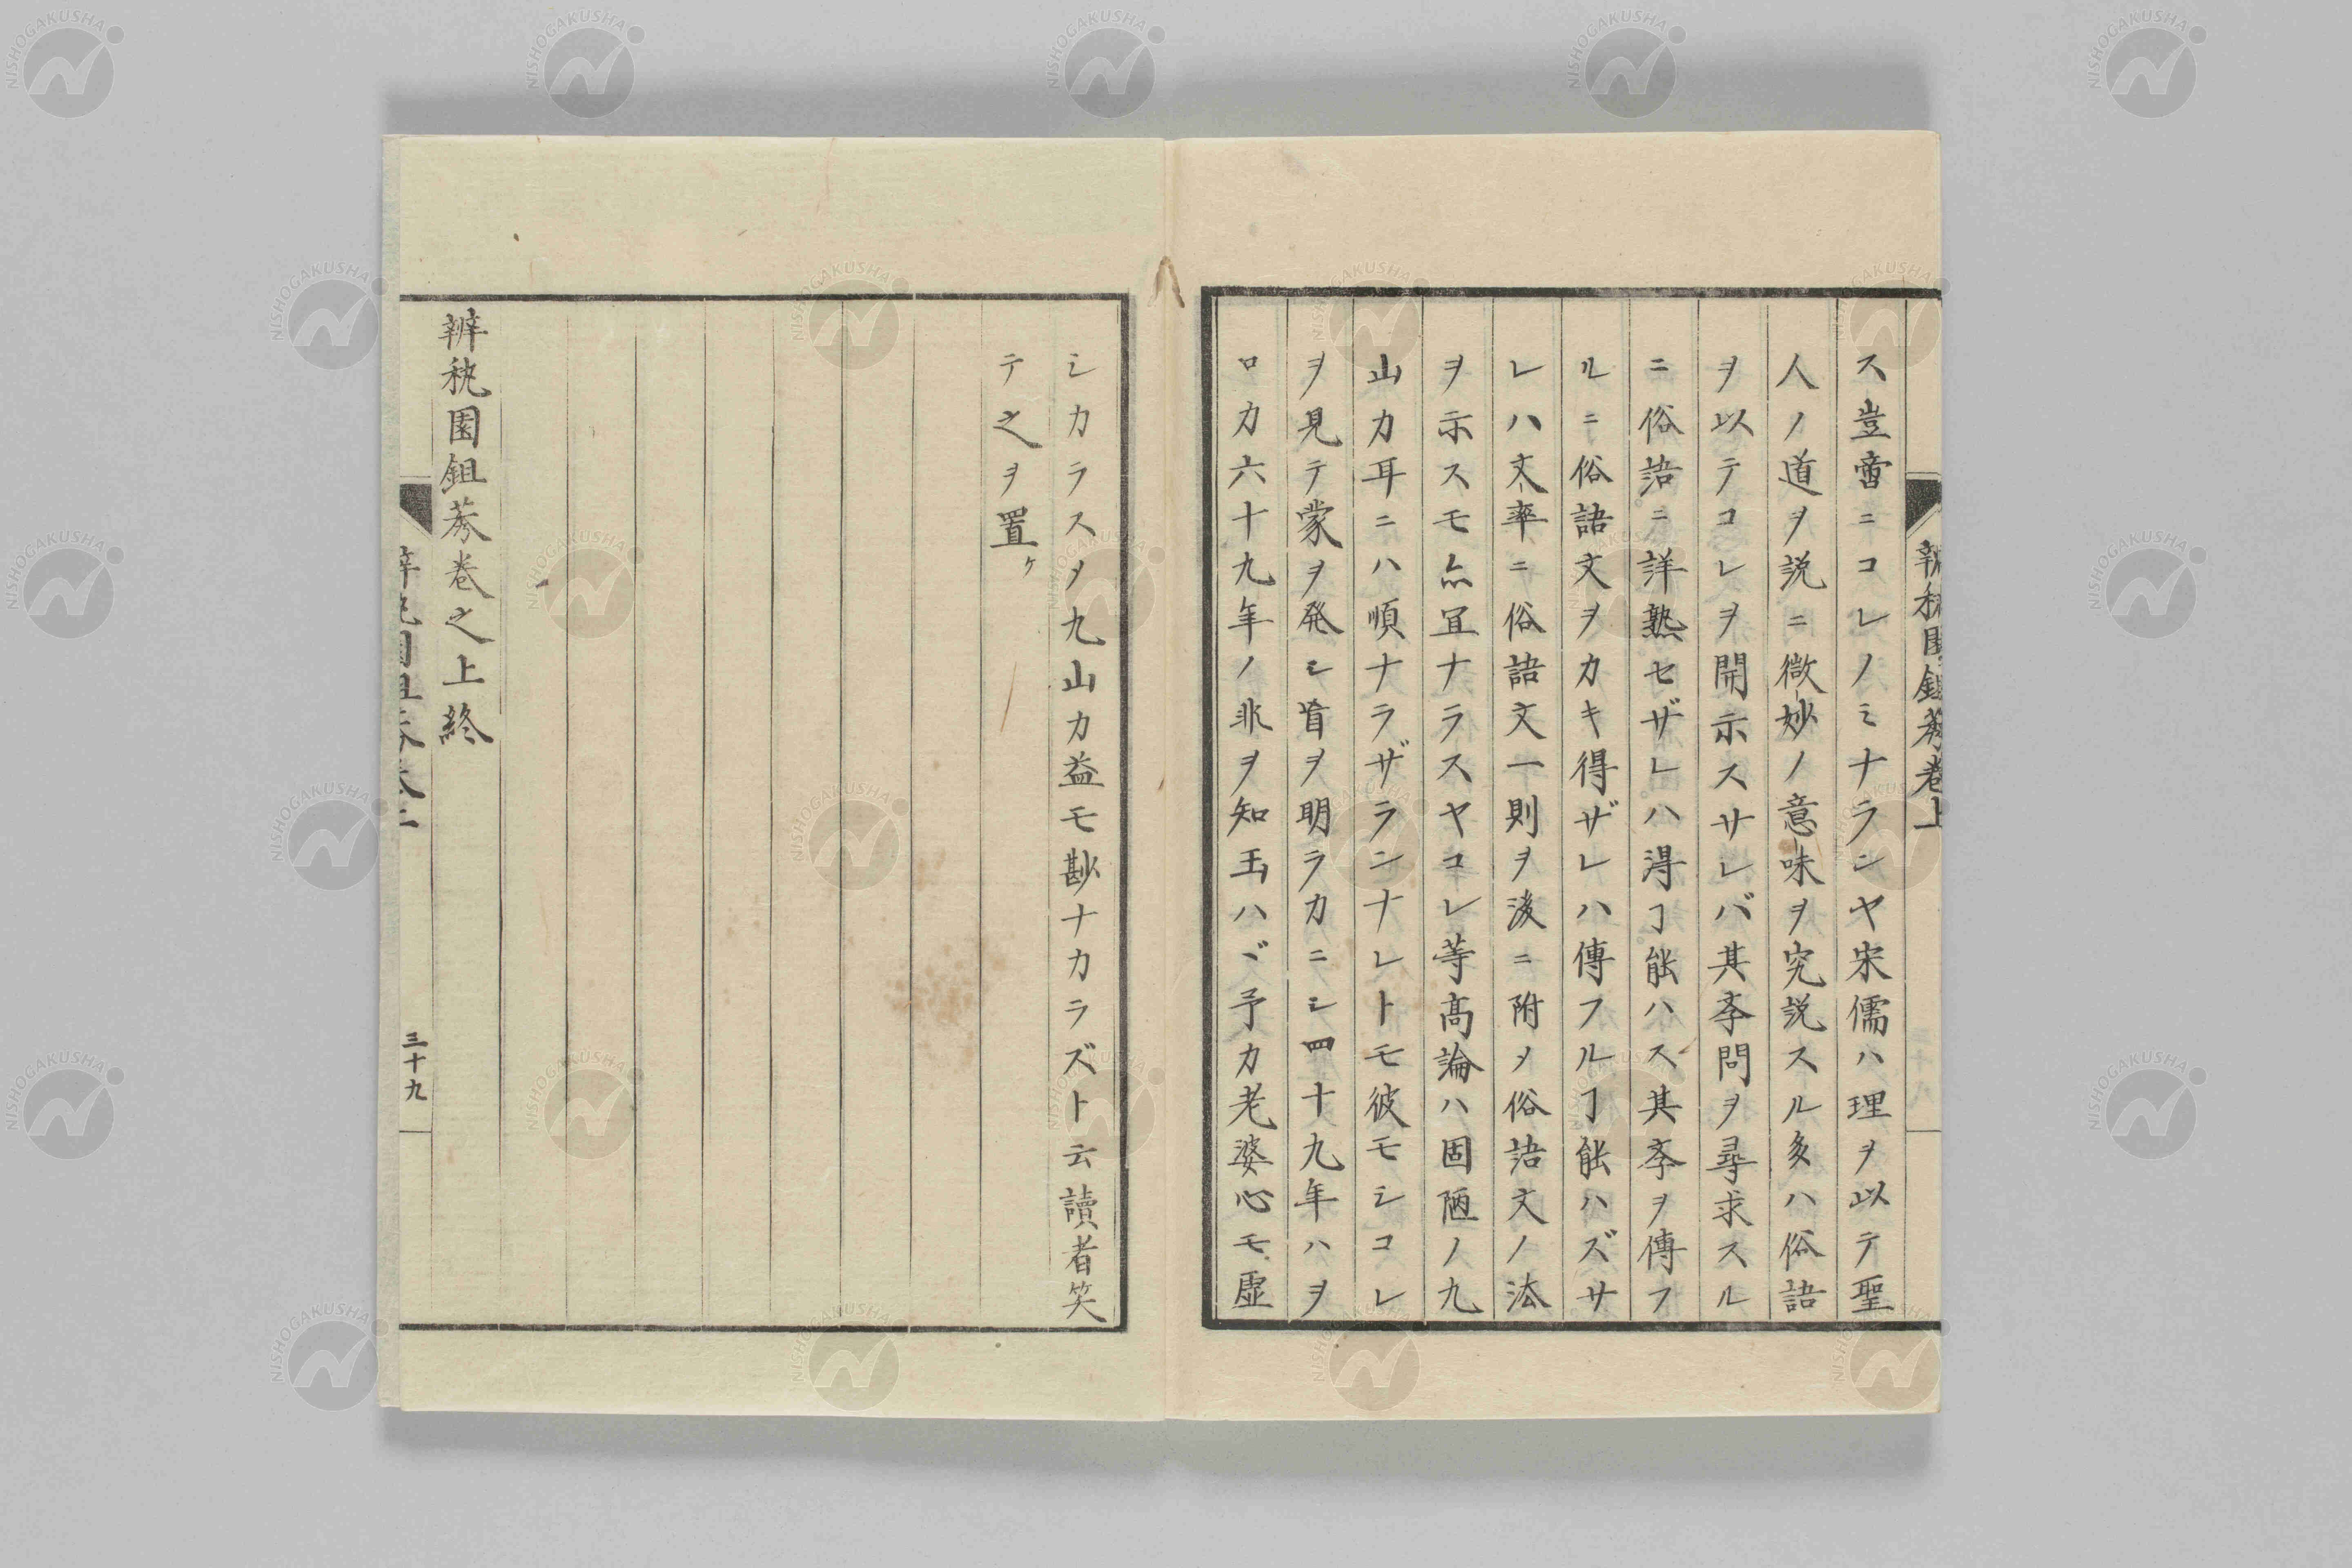 辨秇園鉏莠卷上
ス豈啻ニコレノミナランヤ宋儒ハ理ヲ以テ聖
人ノ道ヲ説ニ微妙ノ意味ヲ究説スル多ハ俗語
ヲ以テコレヲ開示スサレバ其斈問ヲ尋求スル
ニ俗語ニ詳熟セザレハ得ヿ能ハス其斈ヲ傳フ
ルニ俗語文ヲカキ得ザレハ傳フルヿ能ハズサ
レハ文率ニ俗語文一則ヲ後ニ附メ俗語文ノ法
ヲ示スモ亦宜ナラスヤコレ等高論ハ固陋ノ九
山カ耳ニハ順ナラザランナレトモ彼モシコレ
ヲ見テ蒙ヲ発シ盲ヲ明ラカニシ四十九年ハヲ
ロカ六十九年ノ非ヲ知玉ハヾ予カ老婆心モ虚
シカラスメ九山カ益モ尠ナカラズト云讀者笑
テ之ヲ置ケ
辨秇園鉏莠卷之上終
三十九
NISHOGAKUSHA